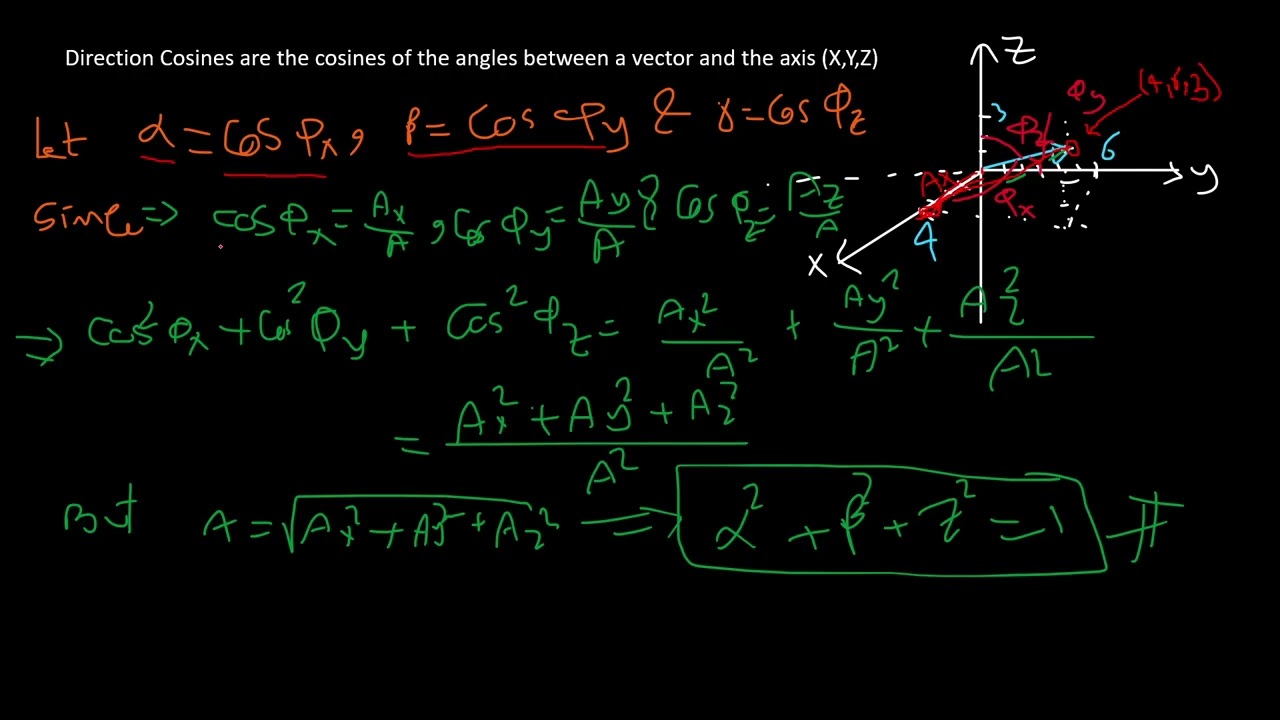 Direction Cosines are the cosines of the angles between a vector and the axis (X,Y,Z)
Let α = Cos φx, β = Cos φy & γ = Cos φz
Since => Cos φx = Ax/A, Cos φy = Ay/A & Cos φz = Az/A
=> Cos² φx + Cos² φy + Cos² φz = Ax²/A² + Ay²/A² + Az²/A²
= Ax² + Ay² + Az² / A²
But A = √Ax² + Ay² + Az² => α² + β² + z² = 1 #
Z
3
φy
φz
6
y
Ax
φx
4
X